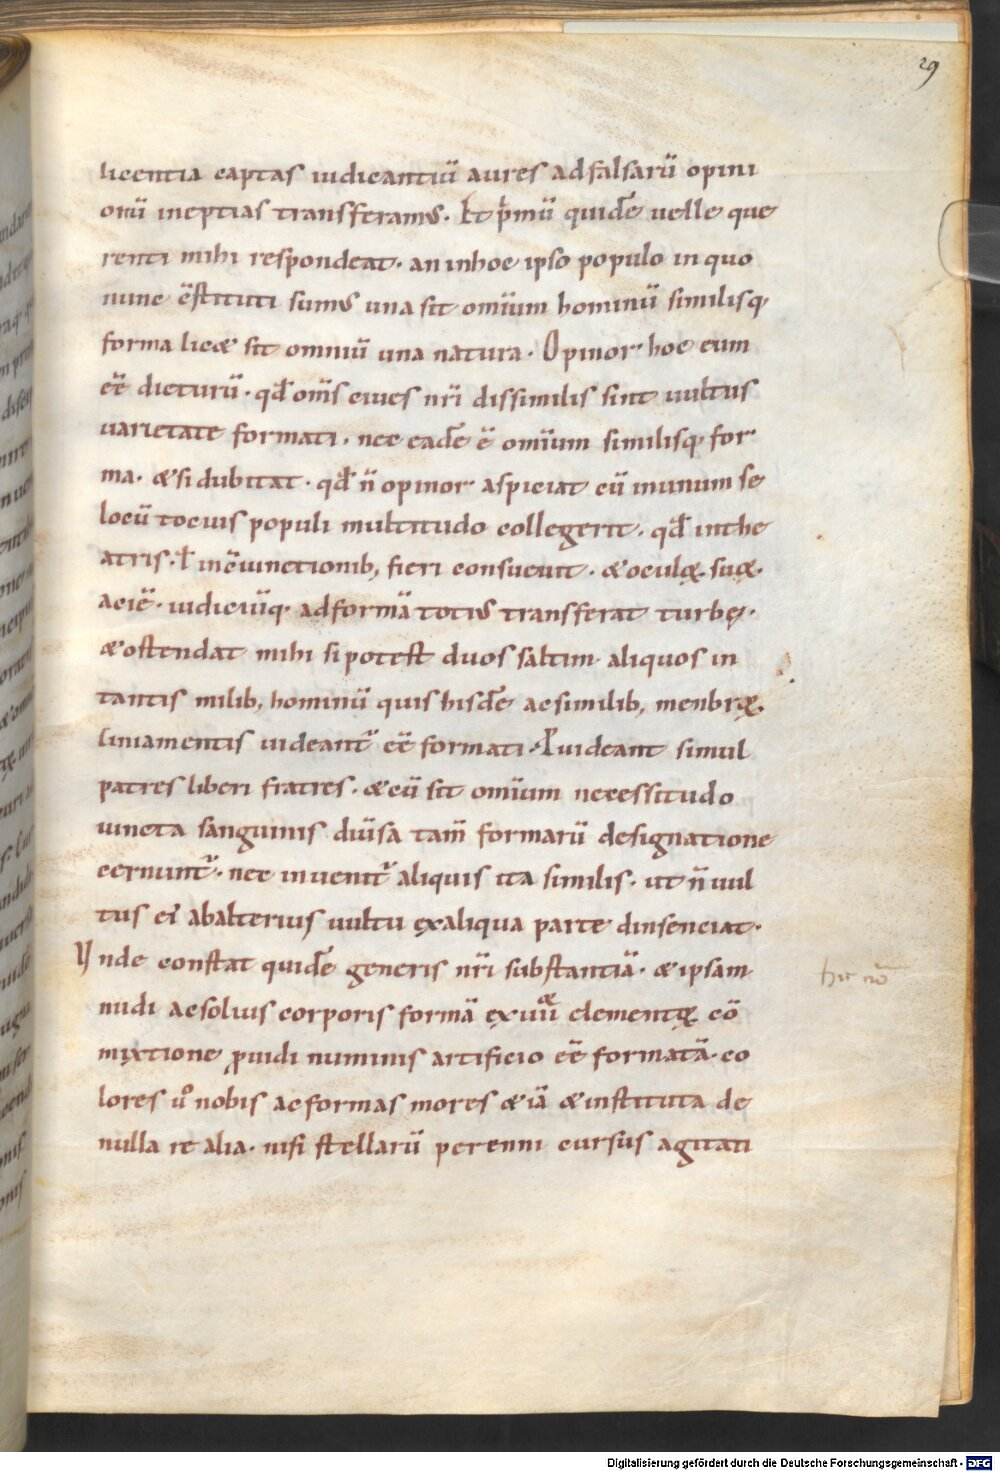 29
licentia captas iudicantiū aures ad falsarū opini
onū ineptias transferamus. Et p̄mū quidē uelle que
renti mihi respondeat. an in hoc ipso populo in quo
nunc c̄stituti sumus una sit omīum hominū similisq;
forma licæ sit omniū una natura. Opinor hoc eum
ēē dicturū. qđ om̄s ciues nr̄i dissimilis sint uultus
uarietate formati. nec eadē ē omīum similisq; for
ma. & si dubitat. qđ n̄ opinor aspiciat cū in unum se
locū tocius populi multitudo collegerit. qđ in the
atris. ł in c̄iunctionib; fieri consueuit. & oculoꝝ suoꝝ
aciē. iudiciūq; ad formā totius transferat turbę.
& ostendat mihi si potest duos saltim aliquos in
tantis milib; hominū quis hisdē ac similib; menbroꝝ
liniamentis uideant᷑ ēē formati. Videant simul
patres liberi fratres. & cū sit omīum necessitudo
iuncta sanguinis diūsa tam̄ formarū designatione
cernunt᷑. nec inuenit᷑ aliquis ita similis. ut n̄ uul
tus ei᷑ ab alterius uultu ex aliqua parte dinsenciat.
Vnde constat quidē generis nr̄i substantiā. & ipsam
nudi ac solius corporis formā ex uuͣ elementoꝝ cō
mixtione ꝓuidi numinis artificio ēē formatā. co
lores ūo nobis ac formas mores & iā & instituta de
nulla re alia. nisi stellarū perenni cursus agitati